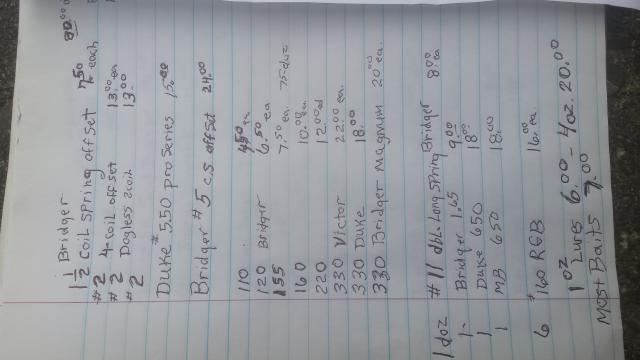 Bridger
1 1/2 Coil Spring offset 7.50 each
#2 4 coil offset 13.00 ea
#2 Dogless 2coil 13.00
#2
Duke #550 pro Series 15.00
Bridger #5 C.S offset 24.00
110 4.50 ea
120 Bridger 6.50 ea
155 7.50 ea. 75 doz
160 10.00 ea
220 12.00
330 Victor 22.00 ea.
330 Duke 18.00
330 Bridger Magnum 20.00 ea
1 doz #11 dbl. Long Spring Bridger 8.00 ea
1- Bridger 1.65 9.00
1 Duke 650 18.00
1 MB 650 18.00
6 #160 RGB 16.00 ea.
1 oz Lures 6.00 - 4oz. 20.00
Most Baits 7.00